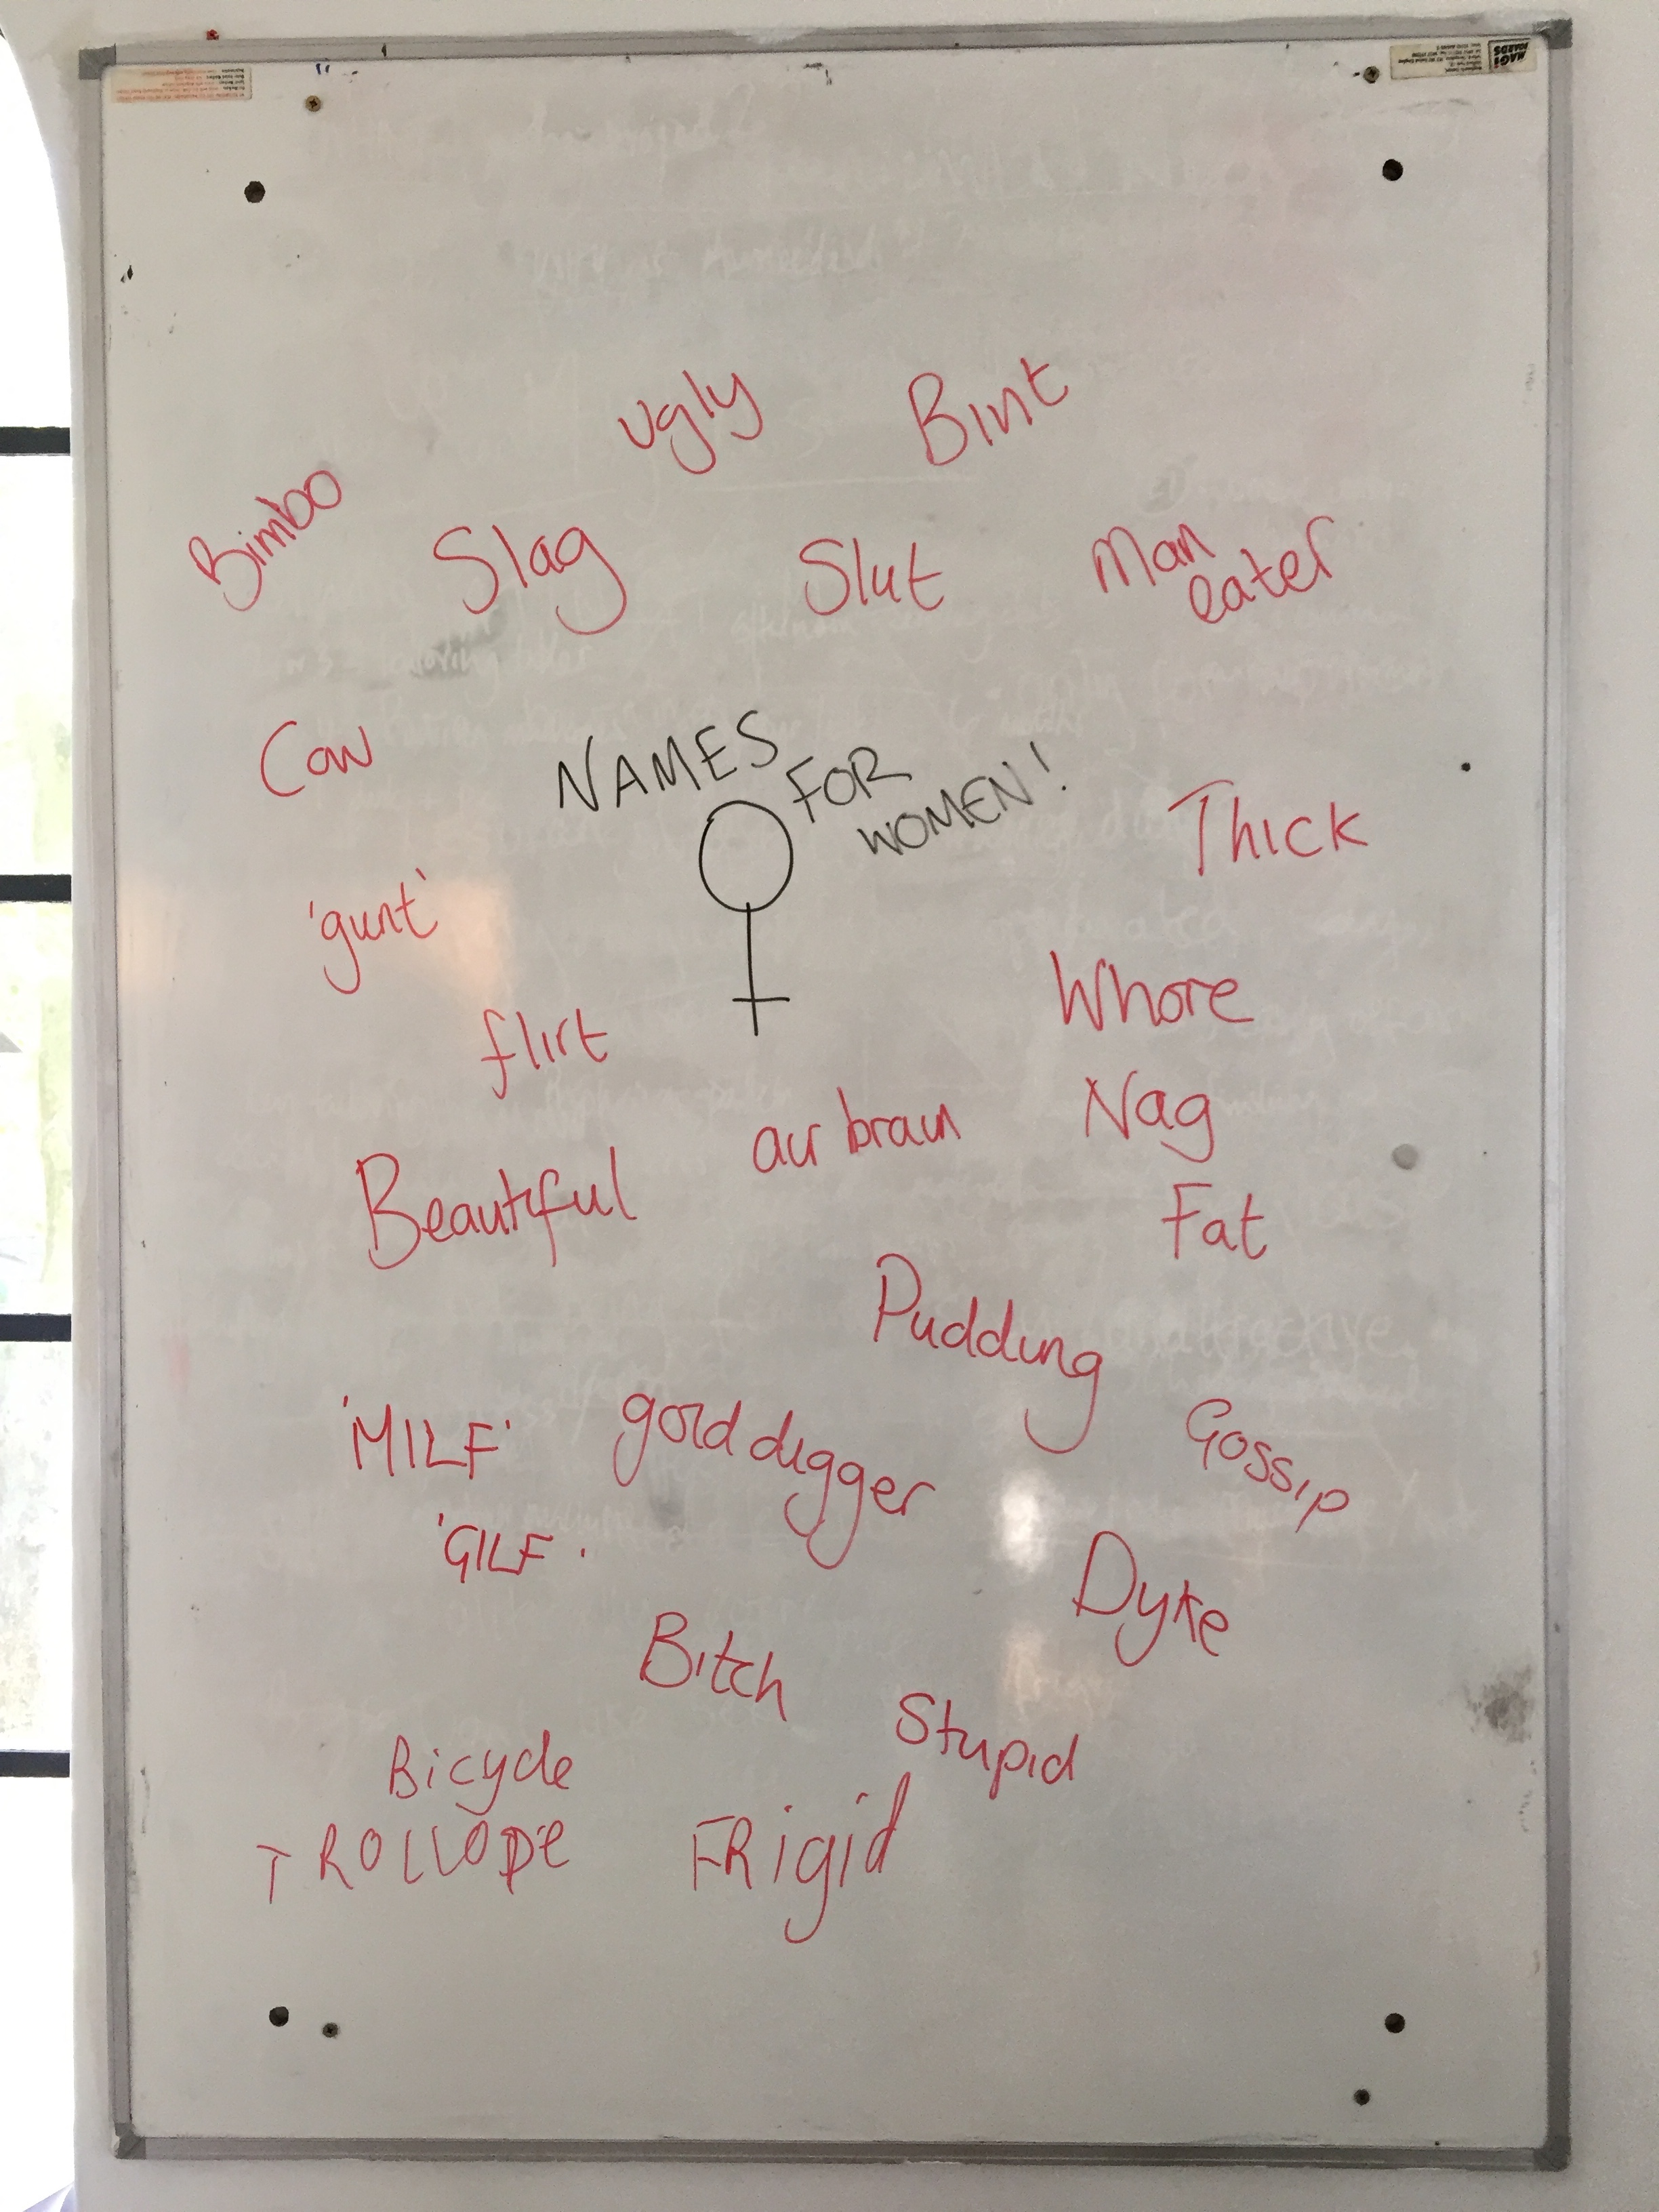 ugly
Bint
Bimbo
Slag
Slut
Man
eater
Cow
NAMES
FOR
WOMEN!
Thick
'gunt'
Whore
flirt
air brain
Nag
Beautiful
Fat
Pudding
'MILF'
gold digger
Gossip
'GILF'
Dyke
Bitch
Stupid
Bicycle
TROLLOPE
FRigid
MAGI
BOARDS